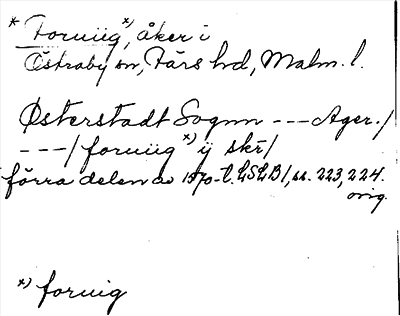 * Forniig*), åker i
Östraby sn, Färs hd, Malm. l.
Østerstadt Sognn --- Ager./
---/ forniig *) ij skr/
förra delen av 1570-t. LSLB/, ss. 223, 224.
orig.
*) fornig